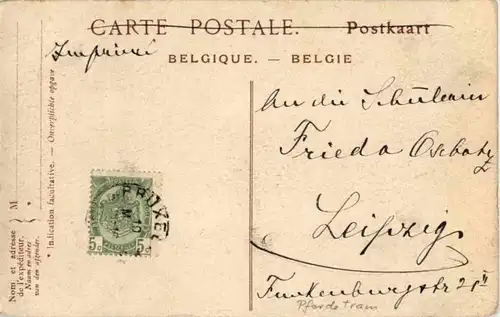 CARTE POSTALE. Postkaart
Imprimé
BELGIQUE. — BELGIE
An die Schülerin
Frieda
Leipzig
Funkenburgstr 25 II
Pferdetram
5c 5c
BRUXEL
10
Nom et adresse
de l'expéditeur.
Naam en adres
van den afzender.
M
* Indication facultative. — Onverplichte opgave